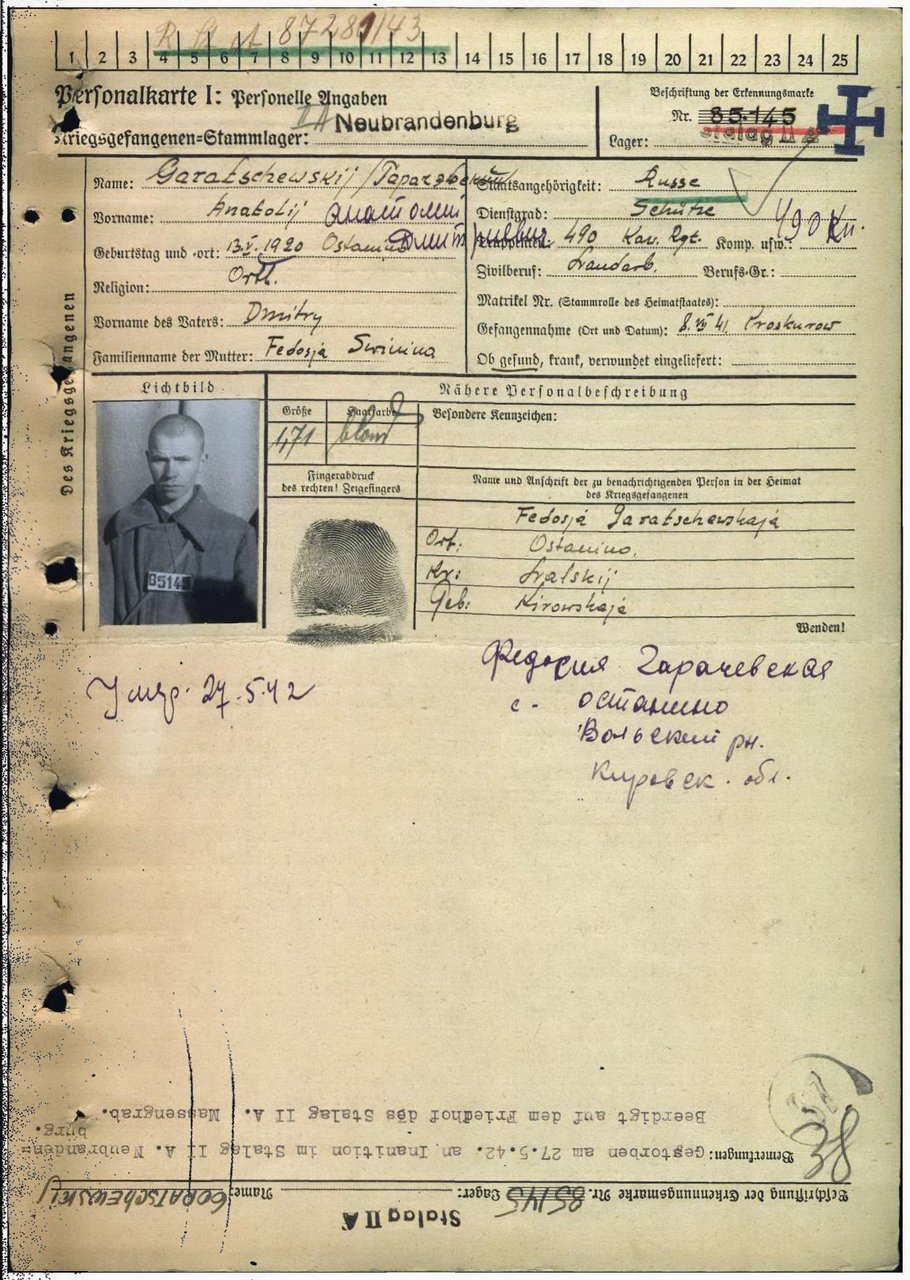 R St at 87281/43
1 2 3 4 5 6 7 8 9 10 11 12 13 14 15 16 17 18 19 20 21 22 23 24 25
Personalkarte I: Personelle Angaben
Kriegsgefangenen-Stammlager: II A Neubrandenburg
Beschriftung der Erkennungsmarke
Nr. 85145
Lager: Stalag II A
Des Kriegsgefangenen
Name: Garatschewskij /
Vorname: Anatolij Анатолий
Geburtstag und -ort: 13.V.1920 Ostanino Дмитриевич
Religion: Orth.
Vorname des Vaters: Dmitry
Familienname der Mutter: Fedosja Swinina
Staatsangehörigkeit: Russe
Dienstgrad: Schütze
Truppenteil: 490 Kav. Rgt. Komp. usw.: 490 Кп.
Zivilberuf: Landarb. Berufs-Gr.:
Matrikel Nr. (Stammrolle des Heimatstaates):
Gefangennahme (Ort und Datum): 8.VII 41, Proskurow
Ob gesund, krank, verwundet eingeliefert:
Lichtbild
85145
Nähere Personalbeschreibung
Größe Haarfarbe Besondere Kennzeichen:
1,71 blond
Fingerabdruck
des rechten! Zeigefingers
Name und Anschrift der zu benachrichtigenden Person in der Heimat
des Kriegsgefangenen
Fedosja Garatschewskaja
Ort: Ostanino,
Kr: Lalskij
Geb: Kirowskaja
Wenden!
Умер 27.5.42
Федосия Гарачевская
с. Останино
Вольский рн.
Кировск. обл.
38
Stalag II A
Beschriftung der Erkennungsmarke Nr. 85145 Lager: Name: GORATSCHEWSKIJ
Bemerkungen: Gestorben am 27.5.42. an Inanition im Stalag II A. Neubranden=
burg.
Beerdigt auf dem Friedhof des Stalag II A. Massengrab.